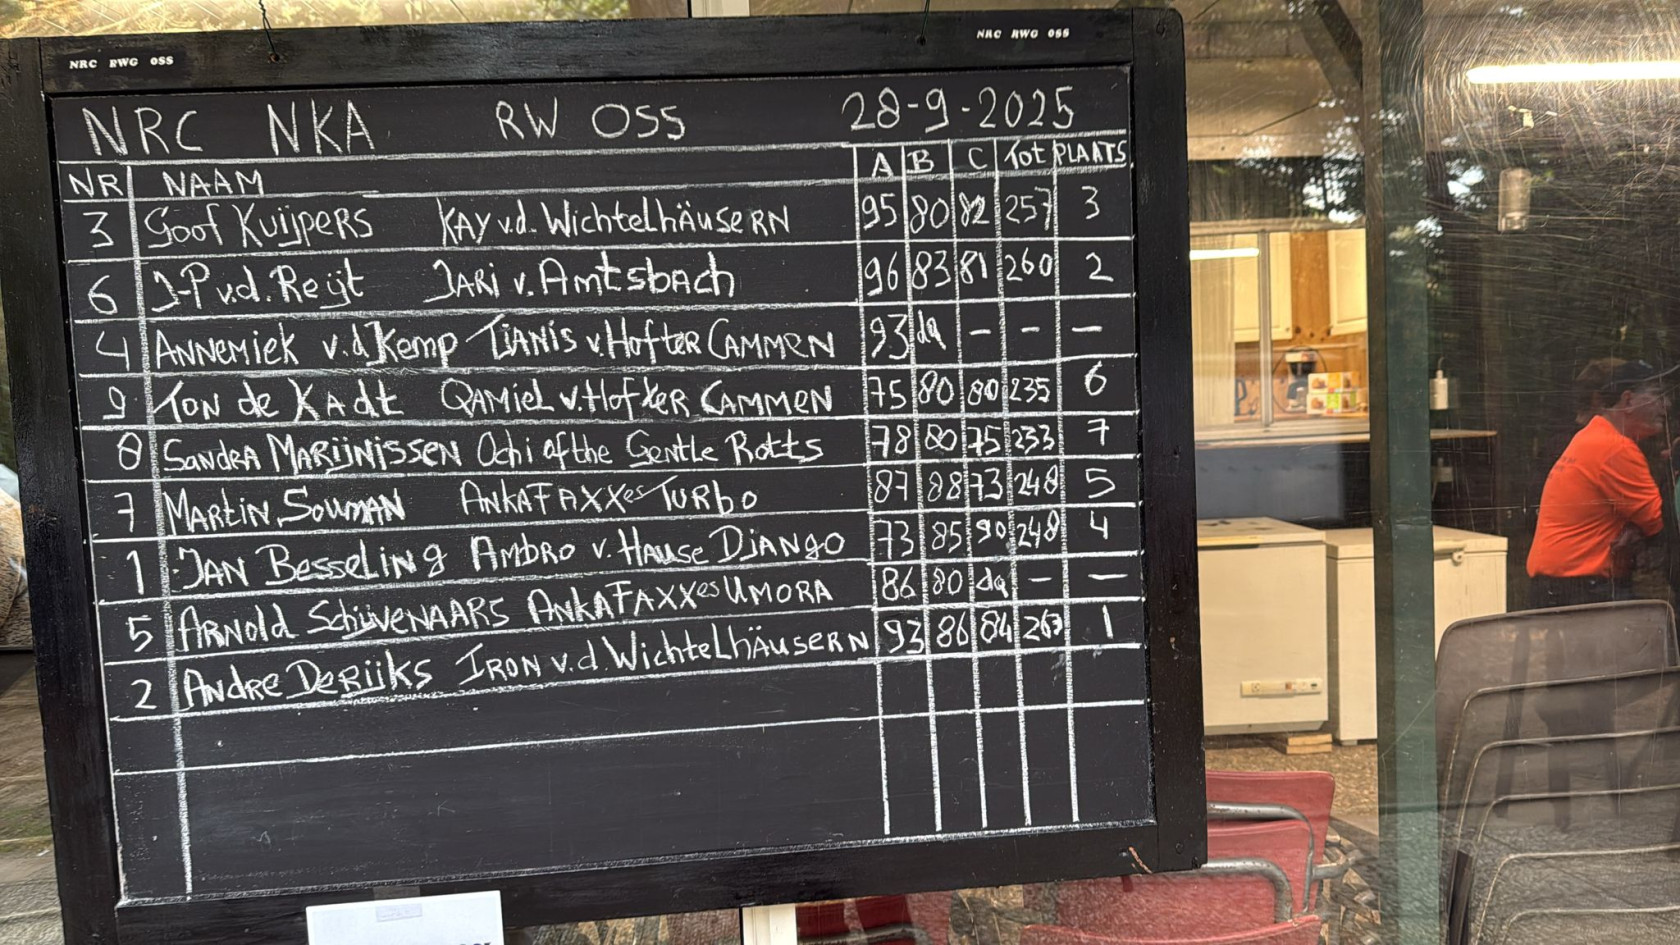 NRC RWG OSS
NRC RWG OSS
NRC NKA RW OSS 28-9-2025
NR NAAM A B C Tot PLAATS
3 Goof Kuijpers KAY v.d. Wichtelhäusern 95 80 82 257 3
6 J-P v.d. Reijt JARI v. Amtsbach 96 83 81 260 2
4 Annemiek v.d Kemp TJANIS v. Hofter CAMMEN 93 dq - - -
9 TON de KAdt QAMIEL v. Hofter CAMMEN 75 80 80 235 6
8 SandRA MARIJNISSEN Ochi of the Gentle Rotts 78 80 75 233 7
7 MARtiN SOUMAN ANKAFAXXes TURBo 87 88 73 248 5
1 JAN BesseLiNg AMBRO v. Hause DJANGO 73 85 90 248 4
5 ARNOld SchuvenAARS ANKAFAXXes UMORA 86 80 dq - -
2 ANDRE DeRijks IRON v.d. WichtelhäuseRN 93 86 84 263 1